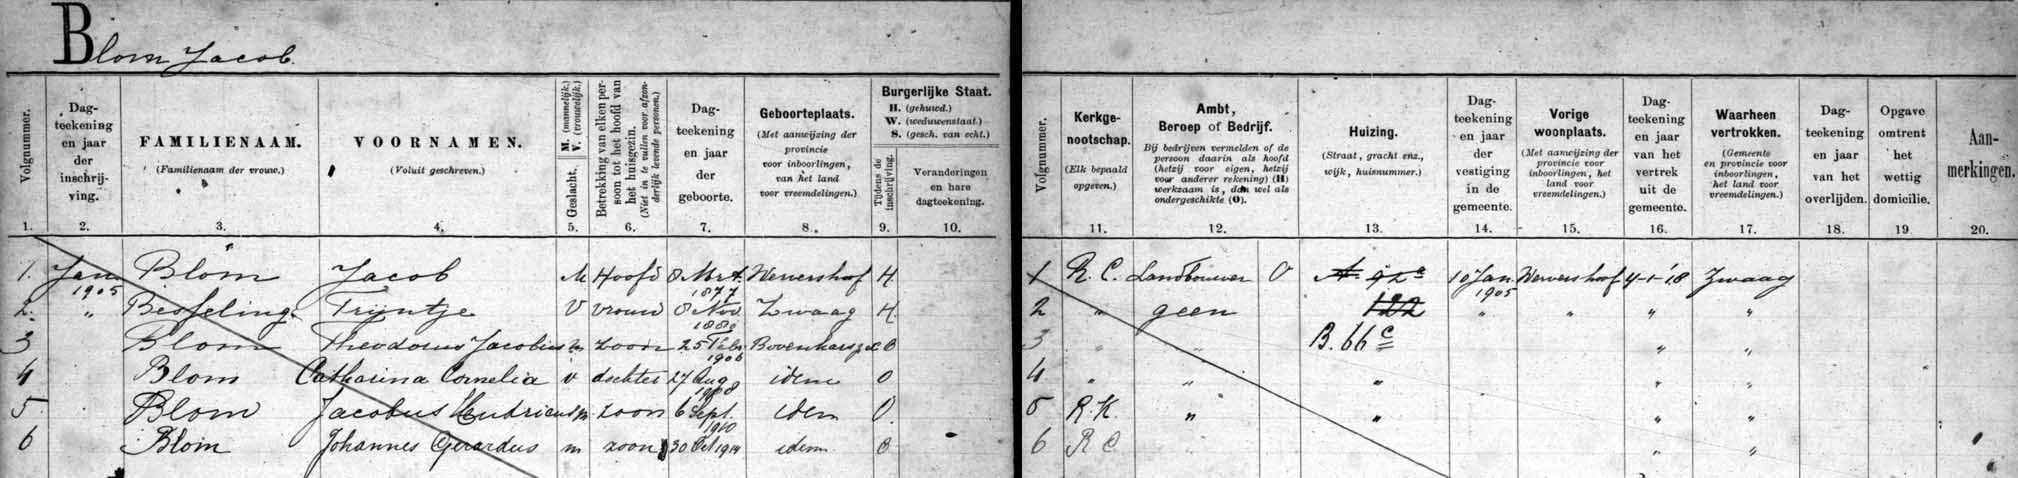 Blom Jacob.
Volgnummer.
1.
Dag-
teekening
en jaar
der
inschrij-
ving.
2.
FAMILIENAAM.
(Familienaam der vrouw.)
3.
VOORNAMEN.
(Voluit geschreven.)
4.
Geslacht.
M. (mannelijk.)
V. (vrouwelijk.)
5.
Betrekking van elken per-
soon tot het hoofd van
het huisgezin.
(Niet in te vullen voor afzon-
derlijk levende personen.)
6.
Dag-
teekening
en jaar
der
geboorte.
7.
Geboorteplaats.
(Met aanwijzing der
provincie
voor inboorlingen,
van het land
voor vreemdelingen.)
8.
Burgerlijke Staat.
H. (gehuwd.)
W. (weduwenstaat.)
S. (gesch. van echt.)
Tijdens de
inschrijving.
9.
Veranderingen
en hare
dagteekening.
10.
Volgnummer.
Kerkge-
nootschap.
(Elk bepaald
opgeven.)
11.
Ambt,
Beroep of Bedrijf.
Bij bedrijven vermelden of de
persoon daarin als hoofd
(hetzij voor eigen, hetzij
voor anderer rekening) (H)
werkzaam is, dan wel als
ondergeschikte (O).
12.
Huizing.
(Straat, gracht enz.,
wijk, huisnummer.)
13.
Dag-
teekening
en jaar
der
vestiging
in de
gemeente.
14.
Vorige
woonplaats.
(Met aanwijzing der
provincie voor
inboorlingen, het
land voor
vreemdelingen.)
15.
Dag-
teekening
en jaar
van het
vertrek
uit de
gemeente.
16.
Waarheen
vertrokken.
(Gemeente
en provincie voor
inboorlingen,
het land voor
vreemdelingen.)
17.
Dag-
teekening
en jaar
van het
overlijden.
18.
Opgave
omtrent
het
wettig
domicilie.
19.
Aan-
merkingen.
20.
1. Jan. 1905 Blom Jacob M Hoofd 8 Mrt. 1877 Wervershoof H. 1 R. C. Landbouwer O A 92c 10 Jan. 1905 Wervershoof 4-1-'18 Zwaag
2. " Besseling Trijntje V vrouw 8 Nov. 1880 Zwaag H. 2 " geen 122 " " " "
3 Blom Theodorus Jacobus m zoon 25 Febr. 1906 O 3 " " B. 66c " "
4 Blom Catharina Cornelia v dochter 27 Aug 1908 idem O 4 " " " " "
5 Blom Jacobus m. zoon 6 Sept. 1910 idem O. 5 R. K " " " "
6 Blom Johannes Gerardus m zoon 30 Oct 1914 idem O 6 R C " "